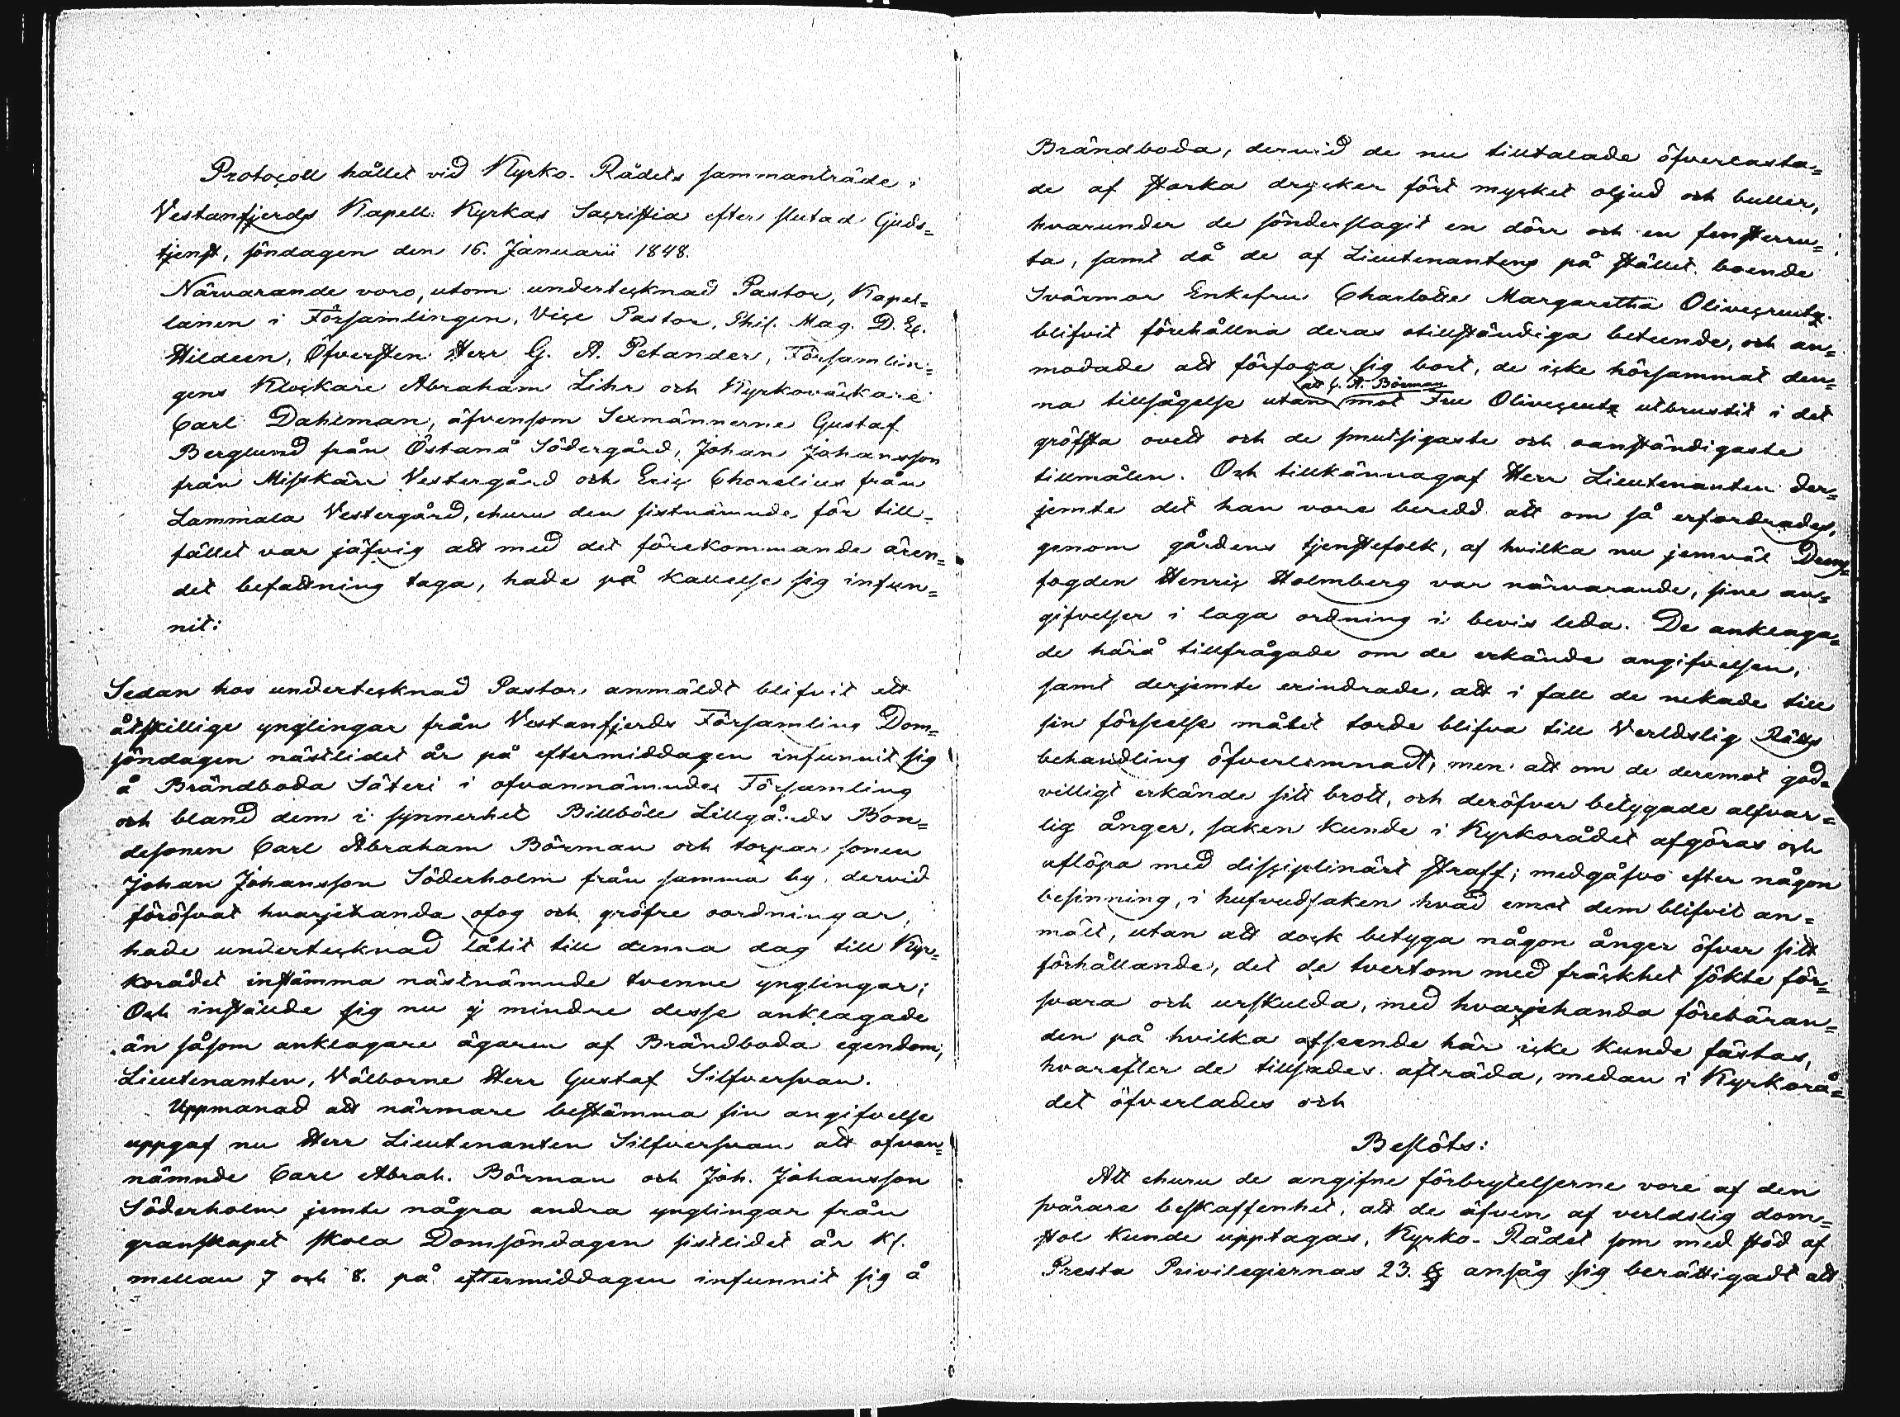 Protocoll hållet vid Kyrko-Rådets sammanträde i
Vestanfjerds Kapell Kyrkas Sacristia efter slutad Guds-
tjenst, söndagen den 16. Januarii 1848.
Närvarande voro, utom undertecknad Pastor, Kapel-
lanen i Församlingen, Vice Pastor, Phil. Mag. D. E.
Hildeen, Öfversten Herr G. A. Petander, Församlin-
gens Klockare Abraham Lihr och Kyrkoväckare
Carl Dahlman, äfvensom Sexmännerne Gustaf
Berglund från Östanå Södergård, Johan Johansson
från Misskärr Vestergård och Eric Chorelius från
Lammala Vestergård, ehuru den sistnämnde för till-
fället var jäfvig att med det förekommande ären-
det befattning taga, hade på kallelse sig infun-
nit:
Sedan hos undertecknad Pastor anmäldt blifvit att
åtskillige ynglingar från Vestanfjerds Församling Dom-
söndagen nästlidet år på eftermiddagen infunnit sig
å Brändboda Säteri i ofvannämnde Församling
och bland dem i synnerhet Billböle Lillgårds Bon-
desonen Carl Abraham Börman och torpar sonen
Johan Johansson Söderholm från samma by dervid
föröfvat hvarjehanda ofog och gröfre oordningar,
hade undertecknad låtit till denna dag till Kyr-
korådet instämma nästnämnde tvenne ynglingar;
Och inställde sig nu ej mindre desse anklagade
än såsom anklagare ägaren af Brändboda egendom,
Lieutenanten, Välborne Herr Gustaf Silfversvan.
Uppmanad att närmare bestämma sin angifvelse
uppgaf nu Herr Lieutenanten Silfversvan att ofvan-
nämnde Carl Abrah. Börman och Joh. Johansson
Söderholm jemte några andra ynglingar från
granskapet skola Domsöndagen sistlidet år Kl.
mellan 7 och 8. på eftermiddagen infunnit sig å
Brändboda, dervid de nu tilltalade öfverlasta-
de af starka drycker fört mycket oljud och buller,
hvarunder de sönderslagit en dörr och en fensterru-
ta, samt då de af Lieutenantens på stället boende
Svärmor Enkefru Charlotte Margaretha Olivecreutz
blifvit förehållna deras otillständiga beteende, och an-
modade att förfoga sig bort, de icke hörsammat den-
att C. A. Börman
na tillsägelse utan mot Fru Olivecreutz utbrustit i det
gröfsta ovett och de smutsigaste och oanständigaste
tillmälen. Och tillkännagaf Herr Lieutenanten der-
jemte det han vore beredd att om så erfordrades,
genom gårdens tjenstefolk, af hvilka nu jemväl Dreng-
fogden Henric Holmberg var närvarande, sine an-
gifvelser i laga ordning i bevis leda. De anklaga-
de härå tillfrågade om de erkände angifvelsen,
samt derjemte erindrade, att i fall de nekade till
sin förseelse målet torde blifva till Verldslig Rätts
behandling öfverlemnadt, men att om de deremot god-
villigt erkände sitt brott, och deröfver betygade alfvar-
lig ånger, saken kunde i Kyrkorådet afgöras och
aflöpa med disciplinärt straff; medgåfvo efter någon
besinning, i hufvudsaken hvad emot dem blifvit an-
mält, utan att dock betyga någon ånger öfver sitt
förhållande, det de tvertom med fräckhet sökte för-
svara och urskulda, med hvarjehanda förebäran-
den på hvilka afseende här icke kunde fästas,
hvarefter de tillsades afträda, medan i Kyrkorå-
det öfverlades och
Beslöts:
Att ehuru de angifne förbrytelserne vore af den
svårare beskaffenhet, att de äfven af verldslig dom-
stol kunde upptagas, Kyrko-Rådet som med stöd af
Presta Privilegiernas 23. § ansåg sig berättigadt att